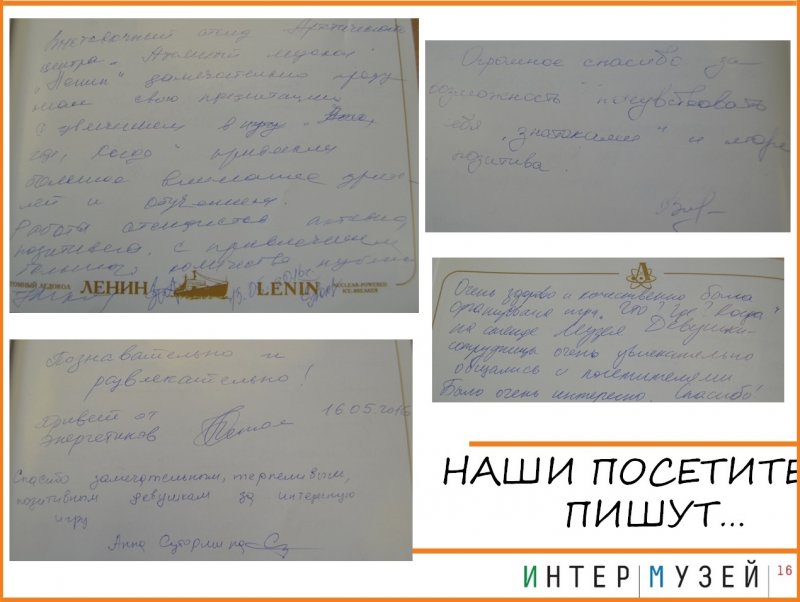 Выставочный стенд Арктического
центра "Атомный ледокол
"Ленин" замечательно проду
ман свою презентацию
с увлечением в игру "Что,
где, когда" привлекли
большое внимание
и обучения.
Работа стендистов активна,
позитивна, с привлечением
большого количества
АТОМНЫЙ ЛЕДОКОЛ ЛЕНИН LENIN NUCLEAR-POWERED ICE-BREAKER
Огромное спасибо за
возможность почувствовать
себя "знатоками" и море
позитива.
Очень здорово и качественно была
организована игра "Что? Где? Когда?"
на стенде Музея. Девушки
сотрудницы очень увлекательно
общались с посетителями
Было очень интересно. Спасибо!
Познавательно и
развлекательно!
Привет от
энергетиков
16.05.2016
Спасибо замечательным, терпеливым,
позитивным девушкам за интересную
игру
Анна Сутормина
НАШИ ПОСЕТИТЕ
ПИШУТ...
ИНТЕР|МУЗЕЙ|16